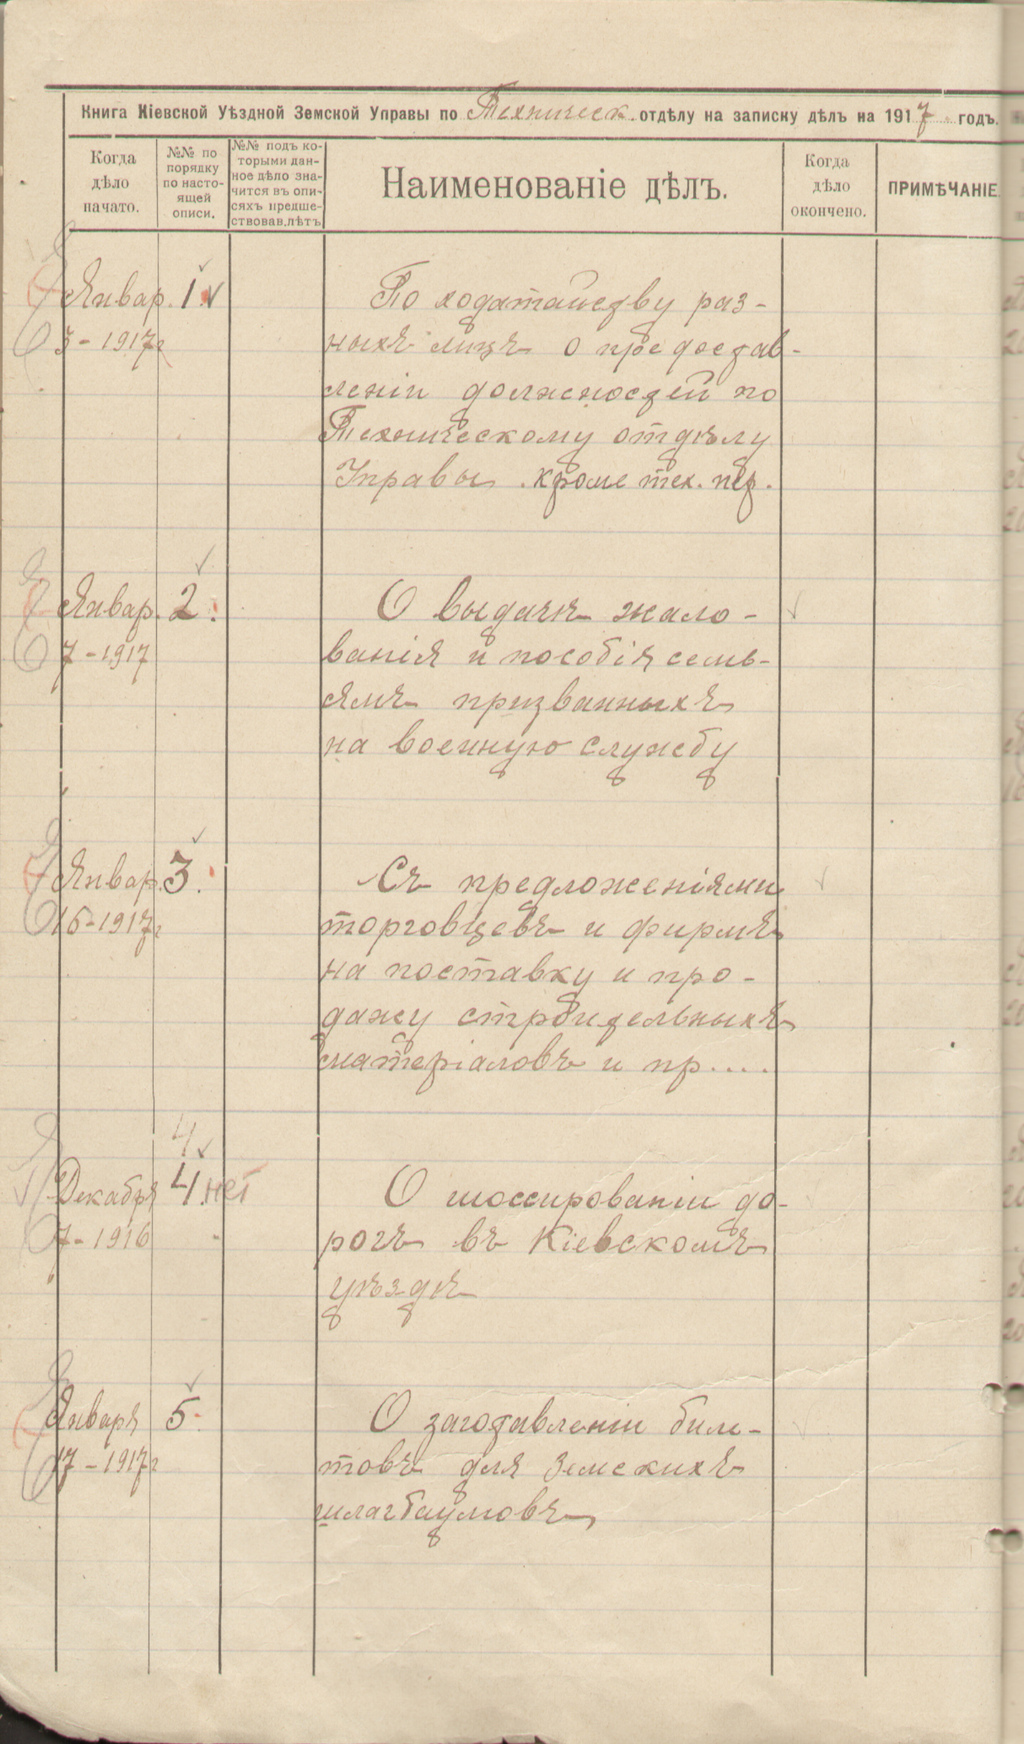 Книга Кіевской Уѣздной Земской Управы по Техническ. отдѣлу на записку дѣлъ на 1917 годъ.
Когда дѣло начато.
№№ по порядку по настоящей описи.
№№ подъ ко-
торыми дан-
ное дѣло зна-
чится въ опи-
сяхъ предше-
ствовав. лѣтъ
Наименованіе дѣлъ.
Когда дѣло окончено.
ПРИМѢЧАНІЕ.
Январ. 1.
3 - 1917г
По ходатайству раз-
ныхъ лицъ о предостав-
леніи должностей по
Техническому отдѣлу
Управы. кроме тех. пер.
Январ. 2.
7 - 1917
О выдачѣ жало-
ванія и пособія семь-
ямъ призванныхъ
на военную службу
Январ. 3.
16 - 1917г
Съ предложеніями
торговцевъ и фирмъ
на поставку и про-
дажу строительныхъ
матеріаловъ и пр....
4
Декабря 4. нет
7 - 1916
О шоссированіи до-
рогъ въ Кіевскомъ
уѣздѣ
Января 5.
17 - 1917г
О заготавленіи биле-
товъ для Земскихъ
шлагбаумовъ